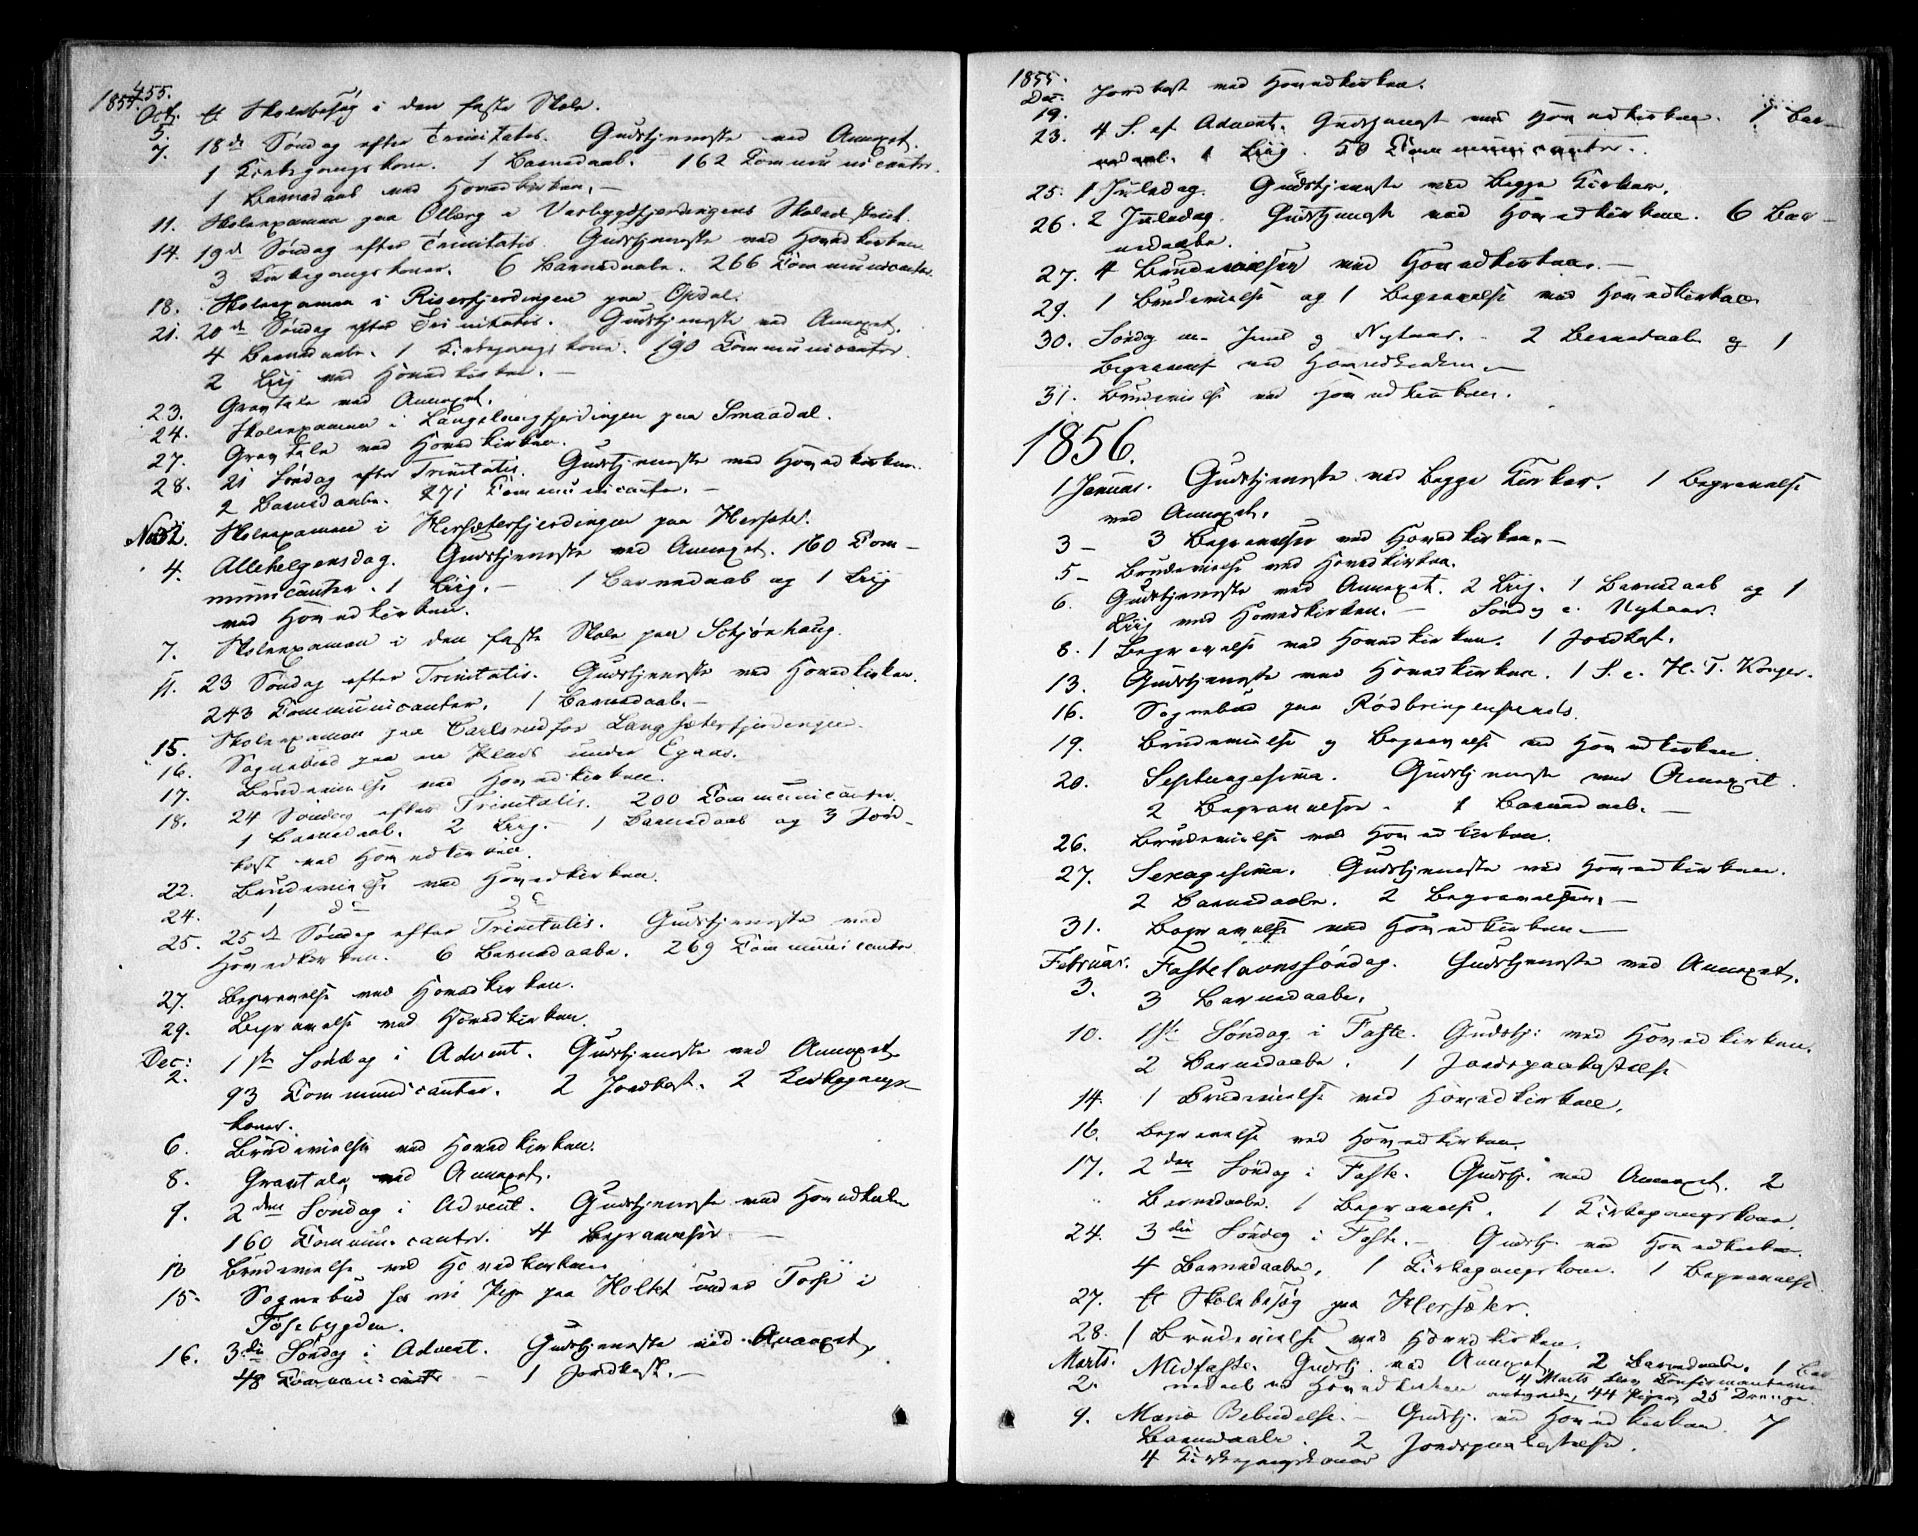 1855.
Oct. 5. Et Skolebesøg i den faste Skole.
7. 18de Søndag efter Trinitatis. Gudstjeneste ved Annexet.
1 Kirkegangskone. 1 Barnedaab. 162 Communicanter.
1 Barnedaab ved Hovedkirken. —
11. Skoleexamen paa Olberg i Varbygdfjerdingens Skoledistrict.
14. 19de Søndag efter Trinitatis. Gudstjeneste ved Hovedkirken
3 Kirkegangskoner. 6 Barnedaabe. 266 Communicanter.
18. Skoleexamen i Riserfjerdingen paa Opdal.
21. 20de Søndag efter Trinitatis. Gudstjeneste ved Annexet.
4 Barnedaabe. 1 Kirkegangskone. 190 Communicanter.
2 Liig ved Hovedkirken. —
23. Gravtale ved Annexet.
24. Skoleexamen i Langelangfjerdingen paa Smaadal.
27. Gravtale ved Hovedkirken.
28. 21 Søndag efter Trinitatis. Gudstjeneste ved Hovedkirken.
2 Barnedaabe. 271 Communicanter. —
Nov. 2. Skoleexamen i Hersæterfjerdingen paa Hersæter.
4. Allehelgensdag. Gudstjeneste ved Annexet. 160 Com-
municanter. 1 Liig. — 1 Barnedaab og 1 Liig
ved Hovedkirken.
7. Skoleexamen i den faste Skole paa Schjønhaug.
11. 23 Søndag efter Trinitatis. Gudstjeneste ved Hovedkirken.
243 Communicanter. 1 Barnedaab. —
15. Skoleexamen paa Carlsrud for Langsæterfjerdingen.
16. Sognebud paa en Plads under Egaas.
17. Brudevielse ved Hovedkirken.
18. 24 Søndag efter Trinitatis. 200 Communicanter.
1 Barnedaab. 2 Liig. — 1 Barnedaab og 3 Jord-
kast ved Hovedkirken.
22. Brudevielse ved Hovedkirken.
24. 1 do do
25. 25de Søndag efter Trinitatis. Gudstjeneste ved
Hovedkirken. 6 Barnedaabe. 269 Communicanter
27. Begravelse ved Hovedkirken.
29. Begravelse ved Hovedkirken.
Dec: 2. 1ste Søndag i Advent. Gudstjeneste ved Annexet
93 Communicanter. 2 Jordkast. 2 Kirkegangs-
koner.
6. Brudevielse ved Hovedkirken.
8. Gravtale ved Annexet.
9. 2den Søndag i Advent. Gudstjeneste ved Hovedkirken
160 Communicanter. 4 Begravelser —
12 Brudevielse ved Hovedkirken
15. Sognebud paa Holtet under Tose i
Tosebygden.
16. 3die Søndag i Advent. Gudstjeneste ved Annexet,
48 Communicanter — 1 Jordkast. —
1855.
Dec. 19. Jordkast ved Hovedkirken.
23. 4 S. ef Advent. Gudstjenest ved Hovedkirken. 1 Bar-
nedaab. 1 Liig. 50 Communicanter.
25. 1 Juledag. Gudstjeneste ved begge Kirker.
26. 2 Juledag. Gudstjeneste ved Hovedkirken. 6 Bar-
nedaabe.
27. 4 Brudevielser ved Hovedkirken. —
29. 1 Brudevielse og 1 Begravelse ved Hovedkirken
30. Søndag m. Juul og Nytaar. 2 Barnedaab og 1
Begravelse ved Hovedkirken —
31. Brudevielse ved Hovedkirken.
1856.
1 Januar. Gudstjeneste ved begge Kirker. 1 Begravelse
ved Annexet.
3 — 3 Begravelser ved Hovedkirken. —
5 — Brudevielse ved Hovedkirken.
6. Gudstjeneste ved Annexet. 2 Liig. 1 Barnedaab og 1
Liig ved Hovedkirken. — Søndg e. Nytaar.
8. 1 Begravelse ved Hovedkirken. 1 Jordkast.
13. Gudstjeneste ved Hovedkirken. 1 S. e. H. T. Konger.
16. Sognebud paa Rødbringenspends.
19. Brudevielse og Begravelse ved Hovedkirken.
20. Septuagesima. Gudstjeneste ved Annexet.
2 Begravelser. 1 Barnedaab. —
26. Brudevielse ved Hovedkirken.
27. Sexagesima. Gudstjeneste ved Hovedkirken.
2 Barnedaabe. 2 Begravelser. —
31. Begravelse ved Hovedkirken —
Februar. 3. Fastelavnssøndag. Gudstjeneste ved Annexet.
3 Barnedaabe.
10. 1ste Søndag i Faste. Gudstj: ved Hovedkirken.
2 Barnedaabe. 1 Jordspaakastelse
14. 1 Brudevielse ved Hovedkirken.
16. Begravelse ved Hovedkirken.
17. 2den Søndag i Faste. Gudstj. ved Annexet. 2
Barnedaabe. 1 Begravelse. 1 Kirkegangskone.
24. 3die Søndag i Faste. — Gudstj. ved Hovedkirken.
4 Barnedaabe. 1 Kirkegangskone. 1 Begravelse
27. Et Skolebesøg paa Hersæter.
28. 1 Brudevielse ved Hovedkirken.
Marts. 2. Midfaste. Gudstj. ved Annexet. 2 Barnedaabe. 1 Bar
nedaab ved Hovedkirken 4 Marts blev Confirmanterne
antegnede, 44 Piger, 25 Drenge.
9. Mariæ Bebudelse. — Gudstj. ved Hovedkirken. 7
Barnedaabe. 2 Jordspaakastelse.
4 Kirkegangskoner